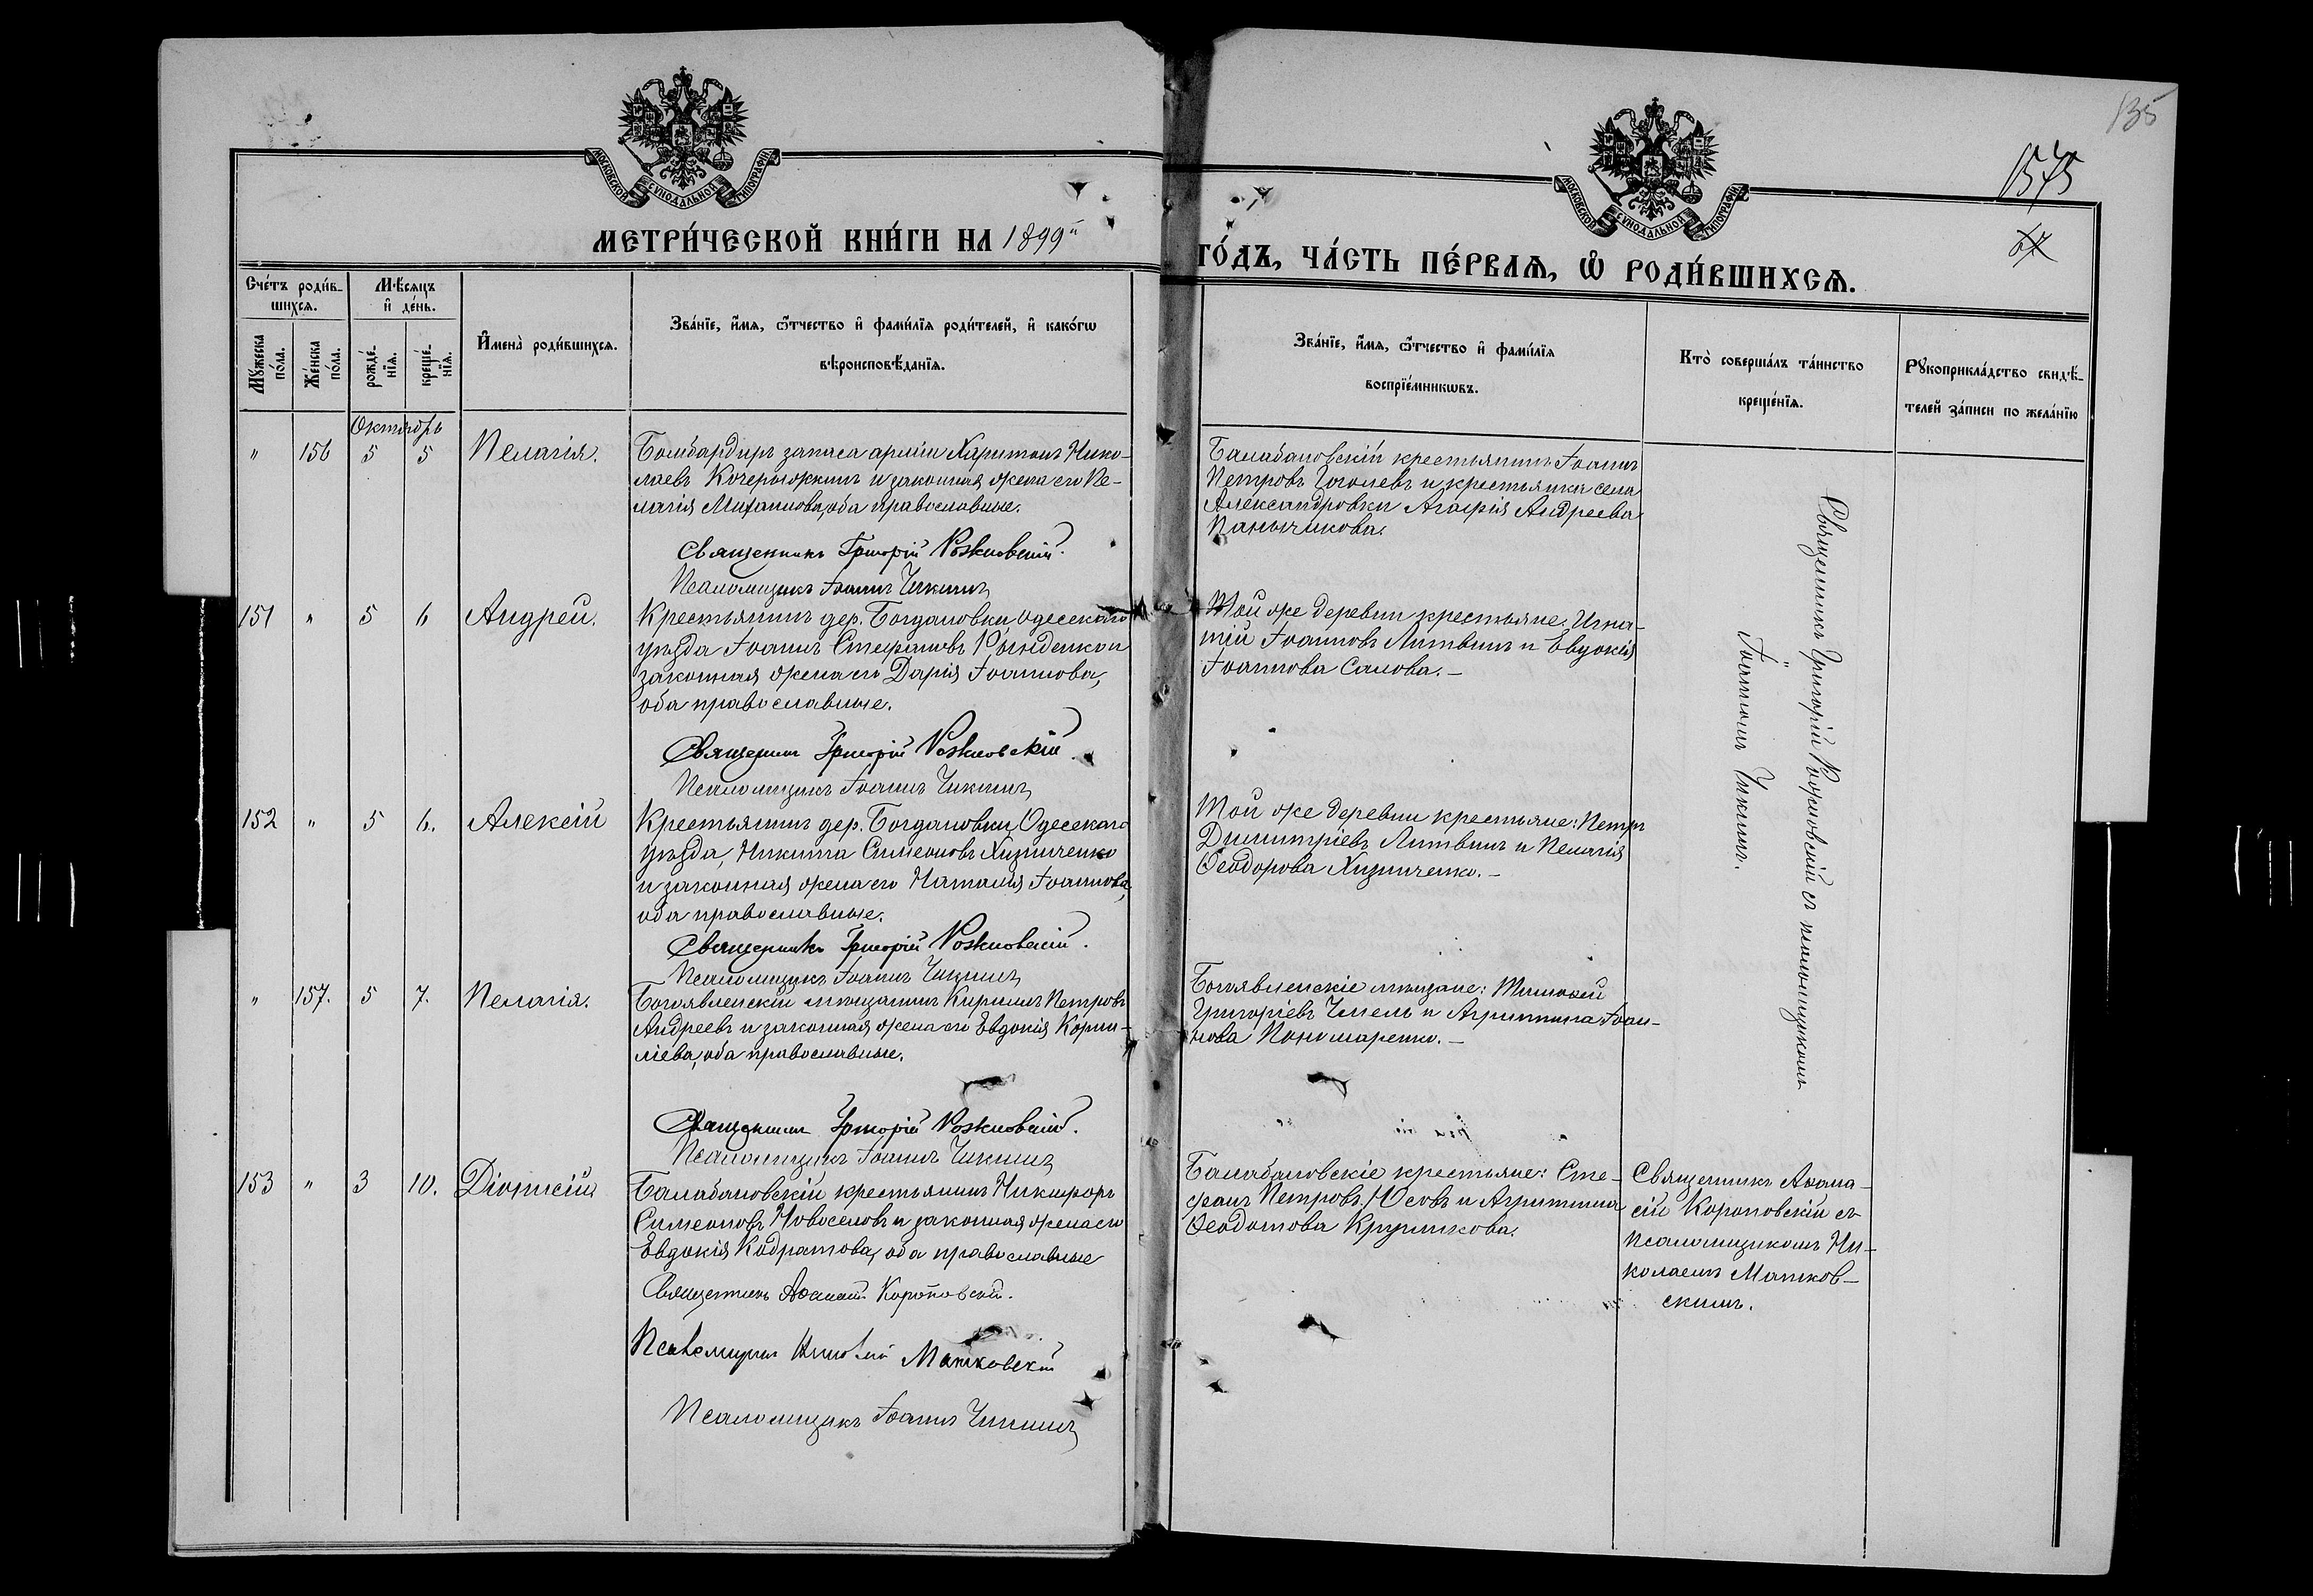 135
1575
67
МОСКОВСКОЙ СѴНОДАЛЬНОЙ ТИПОГРАФІИ
МОСКОВСКОЙ СѴНОДАЛЬНОЙ ТИПОГРАФІИ
МЕТРИ́ЧЕСКОЙ КНИ́ГИ НА 1899й
ГО́ДЪ, ЧА́СТЬ ПЕ́РВАѦ, Ѡ РОДИ́ВШИХСѦ.
Сче́тъ роди́в-
шихсѧ.
Мѣ́сѧцъ
и де́нь.
Мꙋ́жеска
по́ла.
Же́нска
по́ла.
рожде́-
нїѧ.
креще́-
нїѧ.
Имена̀ роди́вшихсѧ.
Зва́нїе, и́мѧ, ѻ҆́тчество и фами́лїѧ роди́телей, и како́гѡ
вѣроисповѣ́данїѧ.
Зва́нїе, и́мѧ, ѻ҆́тчество и фами́лїѧ
воспрїе́мникѡвъ.
Кто̀ соверша́лъ та́инство
креще́нїѧ.
Рꙋкоприкла́дство свидѣ́-
телей за́писи по жела́нїю
Октябрь
" 156 5 5 Пелагія.
Бомбардиръ запаса арміи Харитонъ Нико-
лаевъ Кочерыжкинъ и законная жена его Пе-
лагія Михаилова, оба православные.
Священникъ Григорій
Псаломщикъ Іоаннъ Чикинъ
Балабановскій крестьянинъ Іоаннъ
Петровъ Гоголевъ и крестьянка села
Александровки Агафія Андреева
Паньчикова.
Священникъ Григорій съ псаломщикомъ
Іоанномъ Чикинъ.
151 " 5 6 Андрей.
Крестьянинъ дер. Богдановки Одесскаго
уѣзда Іоаннъ Стефановъ Рынденко и
законная жена его Дарія Іоаннова,
оба православные.
Священникъ Григорій
Псаломщикъ Іоаннъ Чикинъ
Той же деревни крестьяне: Игна-
тій Іоанновъ Литвинъ и Евдокія
Іоаннова Салова.—
152 " 5 6. Алексій
Крестьянинъ дер. Богдановки, Одесскаго
уѣзда, Никита Симеоновъ Хизниченко
и законная жена его Наталія Іоаннова,
оба православные.
Священникъ Григорій
Псаломщикъ Іоаннъ Чикинъ
Той же деревни крестьяне: Петръ
Димитріевъ Литвинъ и Пелагія
Ѳеодорова Хизниченко.—
" 157. 5 7. Пелагія.
Богоявленскій мѣщанинъ Кириллъ Петровъ
Андреевъ и законная жена его Евдокія Корни-
ліева, оба православные.
Священникъ Григорій
Псаломщикъ Іоаннъ Чикинъ
Богоявленскіе мѣщане: Тимоѳей
Григоріевъ Чмель и Агриппина Іоан-
нова Пономаренко.—
153 " 3 10. Діонисій
Балабановскій крестьянинъ Никифоръ
Симеоновъ Новоселовъ и законная жена его
Евдокія Кодратова, оба православные
Священникъ Аѳанасій Короповскій.
Псаломщикъ Николай Матковскій
Псаломщикъ Іоаннъ Чикинъ
Балабановскіе крестьяне: Сте-
фанъ Петровъ Юсовъ и Агриппина
Ѳеодотова Кругликова.
Священникъ Аѳана-
сій Короповскій съ
псаломщикомъ Ни-
колаемъ Матков-
скимъ.